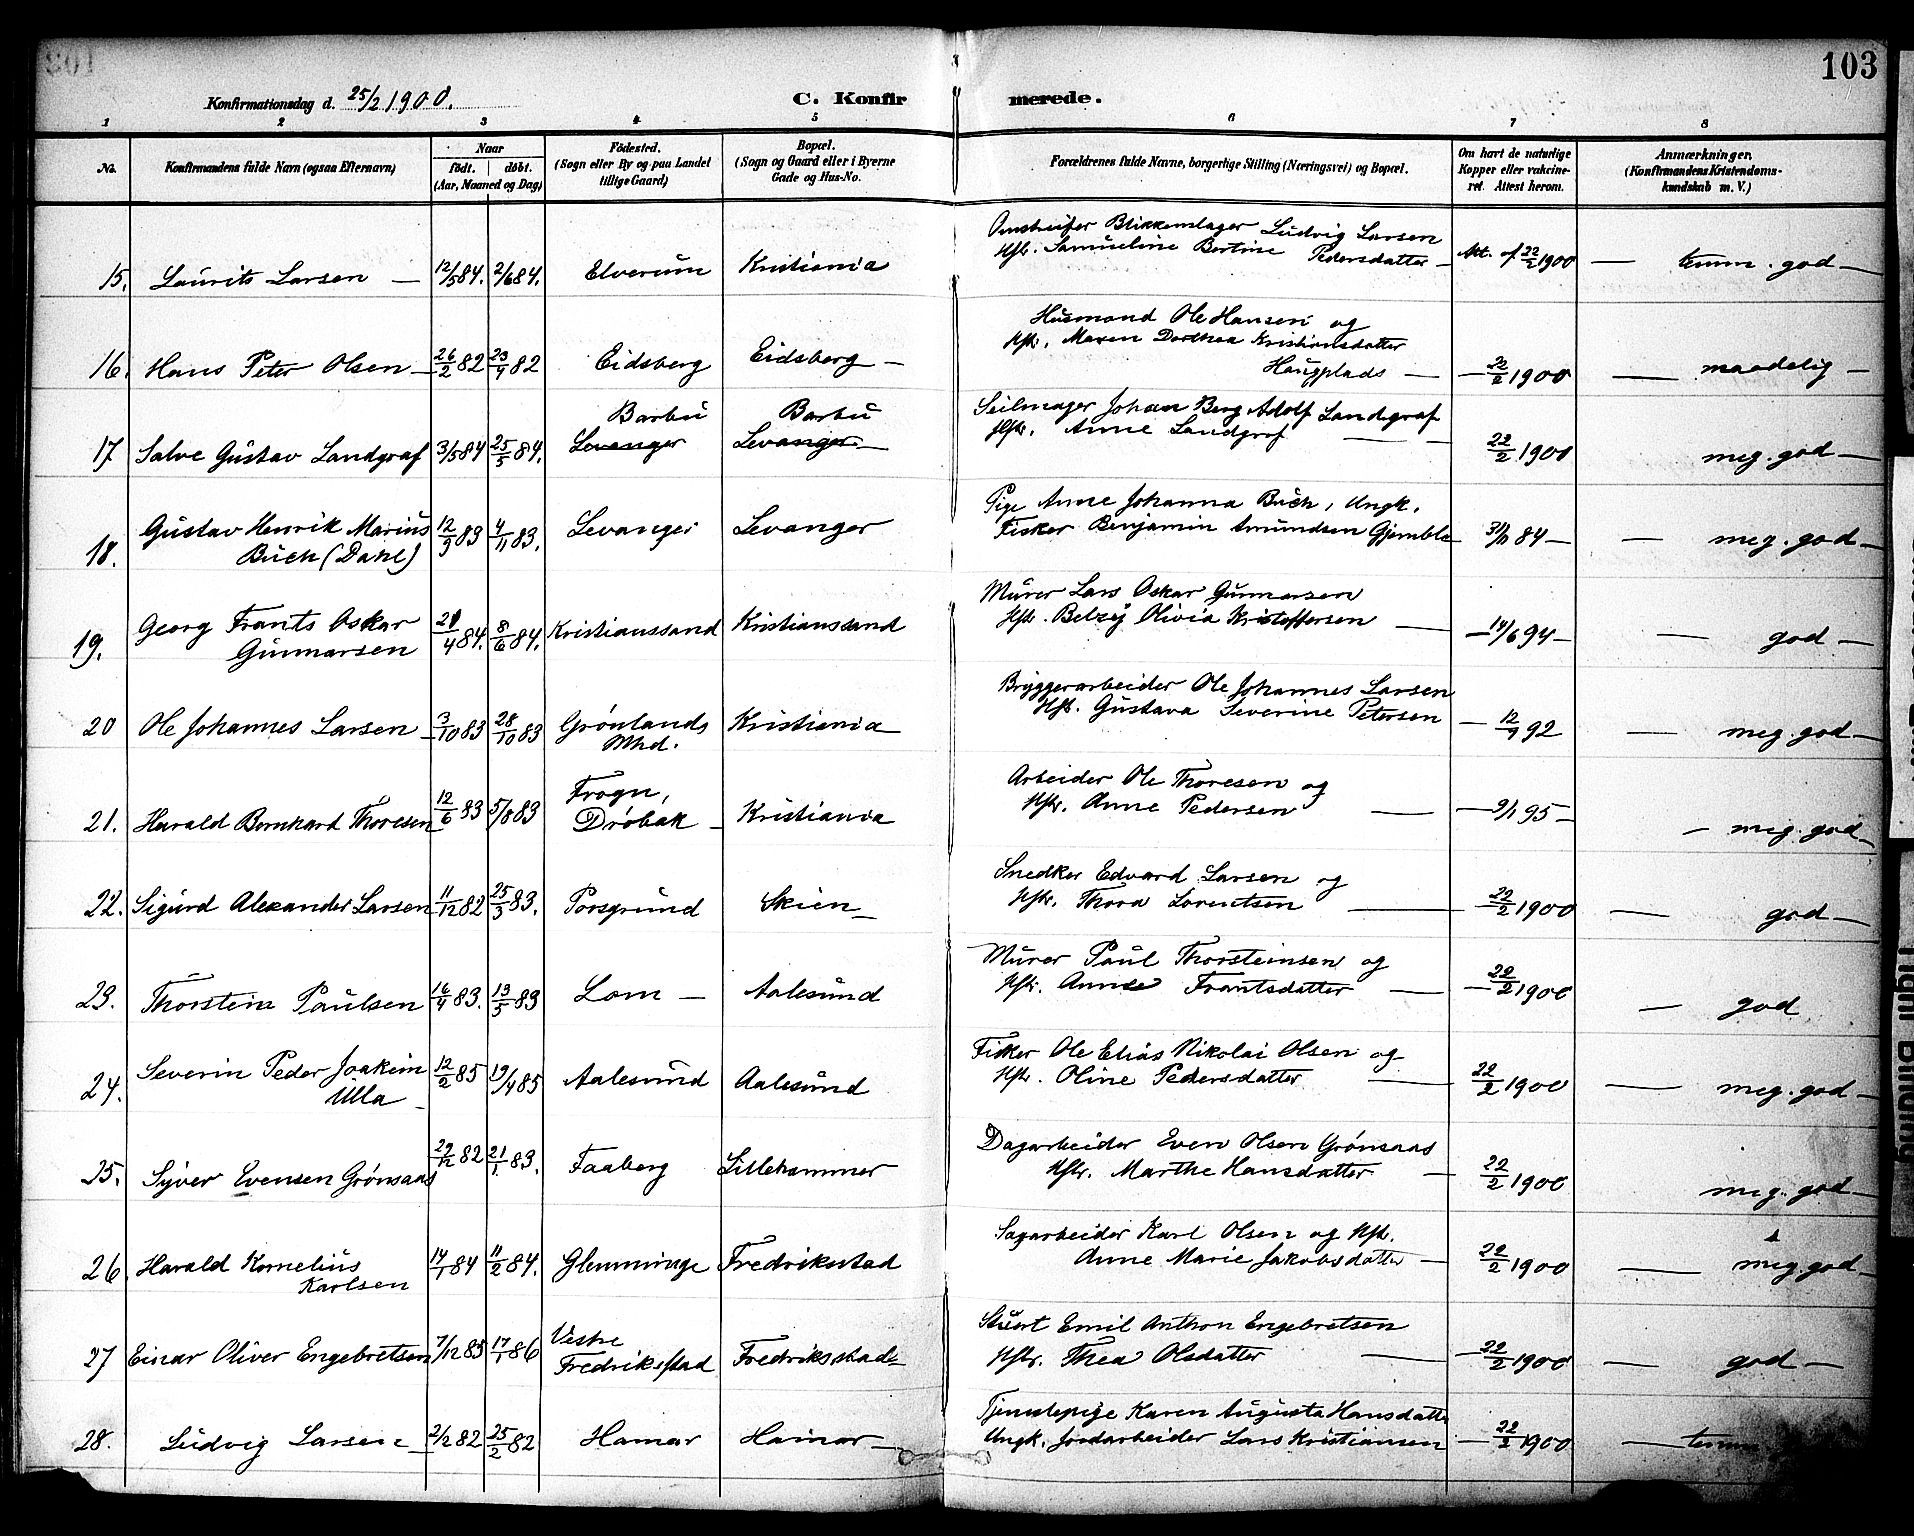 103
Konfirmationsdag d. 25/2 1900.
C. Konfirmerede.
1 2 3 4 5 6 7 8
No.
Konfirmandens fulde Navn (ogsaa Efternavn)
Naar
født. døbt.
(Aar, Maaned og Dag)
Fødested.
(Sogn eller By og paa Landet
tillige Gaard)
Bopæl.
(Sogn og Gaard eller i Byerne
Gade og Hus-No.
Forældrenes fulde Navne, borgerlige Stilling (Næringsvei) og Bopæl.
Om havt de naturlige
Kopper eller vakcine-
ret. Attest herom.
Anmærkninger.
(Konfirmandens Kristendoms-
kundskab m. V.)
15. Laurits Larsen — 12/5 84. 2/6 84. Elverum Kristiania
Blikkenslager Ludvig Larsen
Hstr. Samueline Bertine Pedersdatter — Att. af 22/2 1900 — temm. god —
16. Hans Peter Olsen — 26/2 82 23/4 82 Eidsberg Eidsberg —
Husmand Ole Hansen og
Hstr. Maren Dorthea Kristiansdatter
Haugplads — — 22/2 1900 — maadelig —
17. Salve Gustav Landgraf 3/5 84 25/5 84. Barbu Levanger Barbu Levanger —
Seilmager Johan Berg Adolf Landgraf
Hstr. Anne Landgraf — 22/2 1900 meg. god —
18. Gustav Henrik Marius
Buch (Dahl) 12/9 83 4/11 83. Levanger Levanger
Pige Anne Johanna Buch, Ungk.
Fisker Benjamin Amundsen 84 — — meg. god —
19. Georg Frants Oskar
Gunnarsen 84. 8/6 84. Kristianssand Kristianssand
Murer Lars Oskar Gunnarsen
Hstr. Olivia Kristoffersen — — 14/6 94 — — god —
20 Ole Johannes Larsen — 3/10 83 28/10 83 Grønlands
Mhd. Kristiania
Bryggerarbeider Ole Johannes Larsen
Hstr. Gustava Severine Petersen — 92 — meg. god —
21. Harald Bernhard Thoresen 12/6 83 5/8 83 Frogn,
Drøbak — Kristiania
Arbeider Ole Thoresen og
Hstr. Anne Pedersen — — 9/1 95 — — meg. god —
22. Sigurd Alexander Larsen 11/12 82 25/3 83. Porsgrund Skien —
Snedker Edvard Larsen og
Hstr. Thora Lorentsen — — 22/2 1900 — god —
23. Thorstein Paulsen 16/4 83. 13/5 83 Lom — Aalesund
Murer Paul Thorsteinsen og
Hstr. Anne Frantsdatter — — 22/2 1900 — god
24. Severin Peder Joakim
Ulla — 12/2 85 19/4 85 Aalesund Aalesund
Fisker Ole Elias Nikolai Olsen og
Hstr. Oline Pedersdatter — 22/2 1900 — meg. god —
25. Syver Evensen Grønsaas 29/12 82 21/1 83. Faaberg Lillehammer
Dagarbeider Even Olsen Grønsaas
Hstr. Marthe Hansdatter — 22/2 1900 meg. god —
26 Harald Kornelius
Karlsen 14/1 84 11/2 84. Glemminge Fredriksstad
Sagarbeider Karl Olsen og Hstr.
Anne Marie Jakobsdatter — 22/2 1900 — meg. god —
27 Einar Oliver Engebretsen 7/12 85 17/1 86 Vestre
Fredriksstad Fredriksstad —
Stuert Emil Anthon Engebretsen
Hstr. Thea Olsdatter — — 22/2 1900 — god —
28. Ludvig Larsen — 2/2 82 25/2 82 Hamar Hamar —
Tjenestepige Karen Augusta Hansdatter
Ungk. Jordarbeider Lars Kristiansen — 22/2 1900 — temm